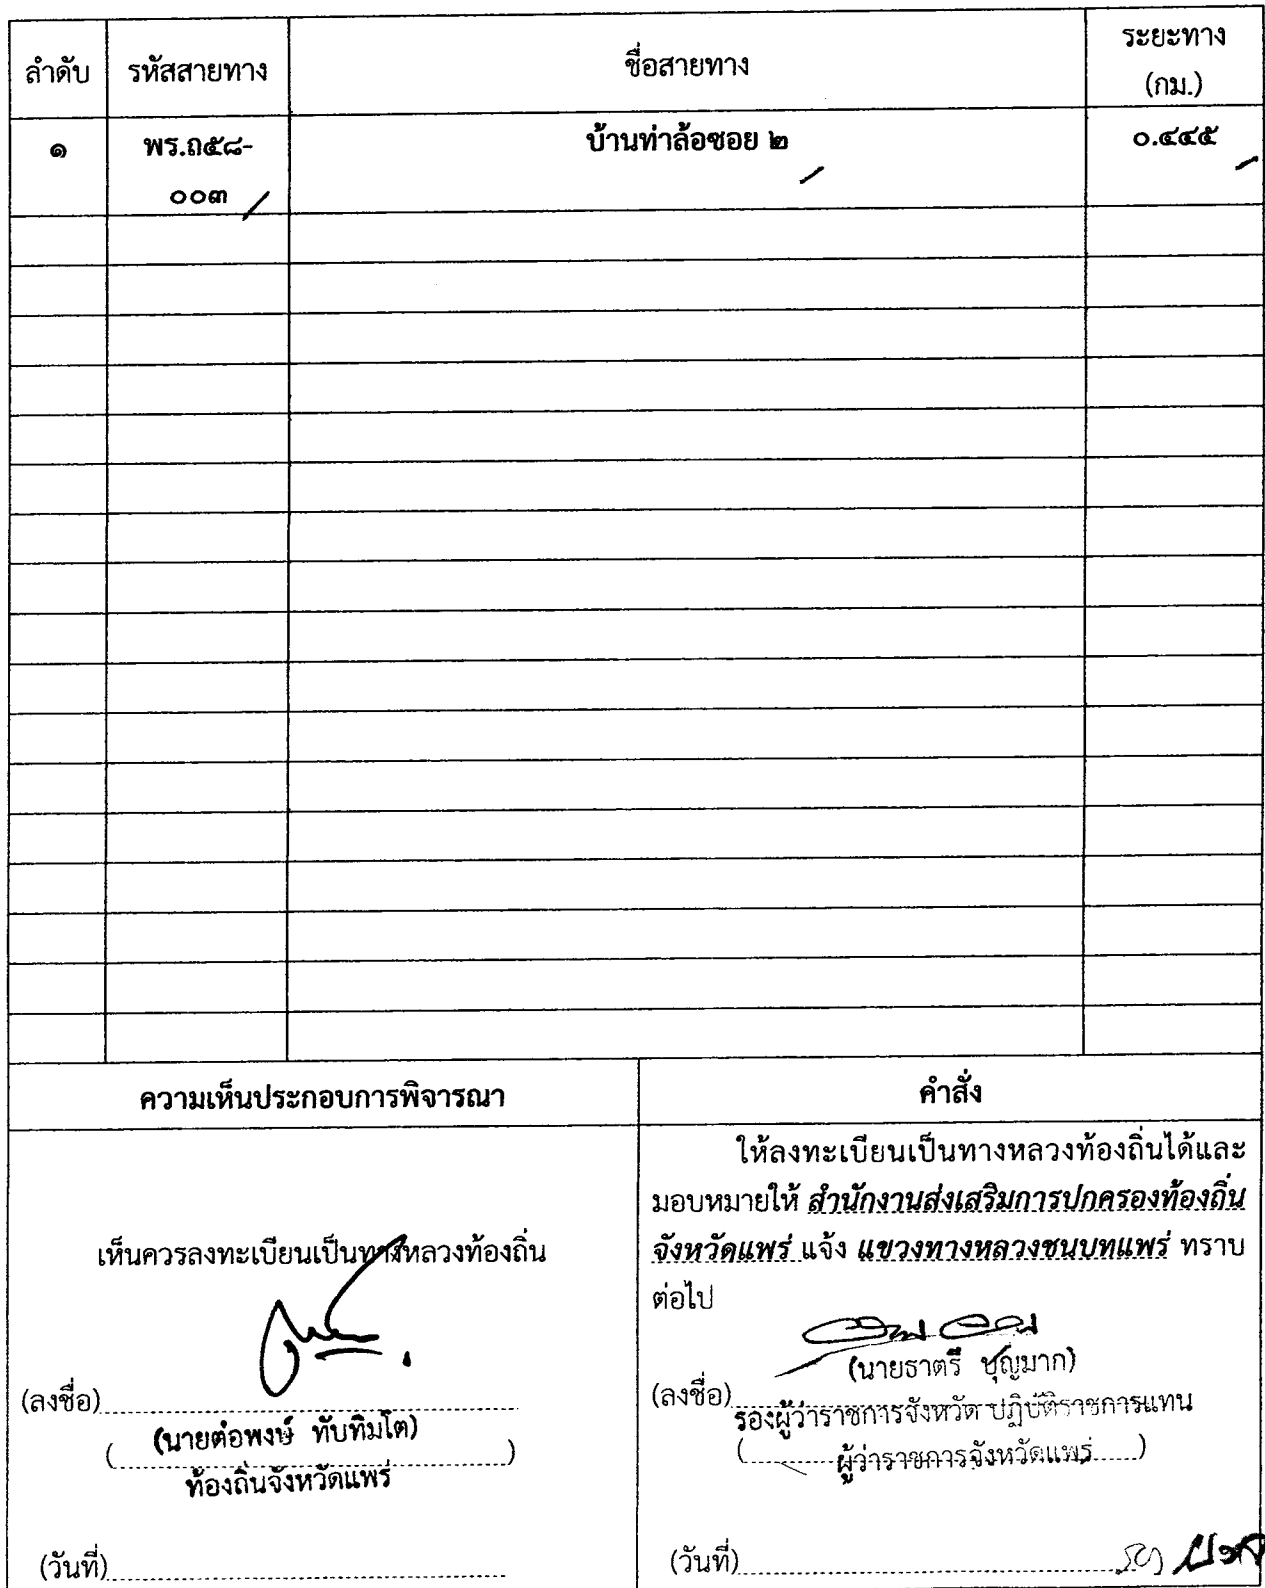 ลำดับ รหัสสายทาง ชื่อสายทาง ระยะทาง
(กม.)
๑ พร.ถ๕๘- บ้านท่าล้อซอย ๒ ๐.๔๔๕
๐๐๓
ความเห็นประกอบการพิจารณา
เห็นควรลงทะเบียนเป็นทางหลวงท้องถิ่น
(ลงชื่อ)
(นายต่อพงษ์ ทับทิมโต)
ท้องถิ่นจังหวัดแพร่
(วันที่)
คำสั่ง
ให้ลงทะเบียนเป็นทางหลวงท้องถิ่นได้และ
มอบหมายให้ สำนักงานส่งเสริมการปกครองท้องถิ่น
จังหวัดแพร่ แจ้ง แขวงทางหลวงชนบทแพร่ ทราบ
ต่อไป
(นายธาตรี บุญมาก)
(ลงชื่อ)
รองผู้ว่าราชการจังหวัด ปฏิบัติราชการแทน
ผู้ว่าราชการจังหวัดแพร่
(วันที่)